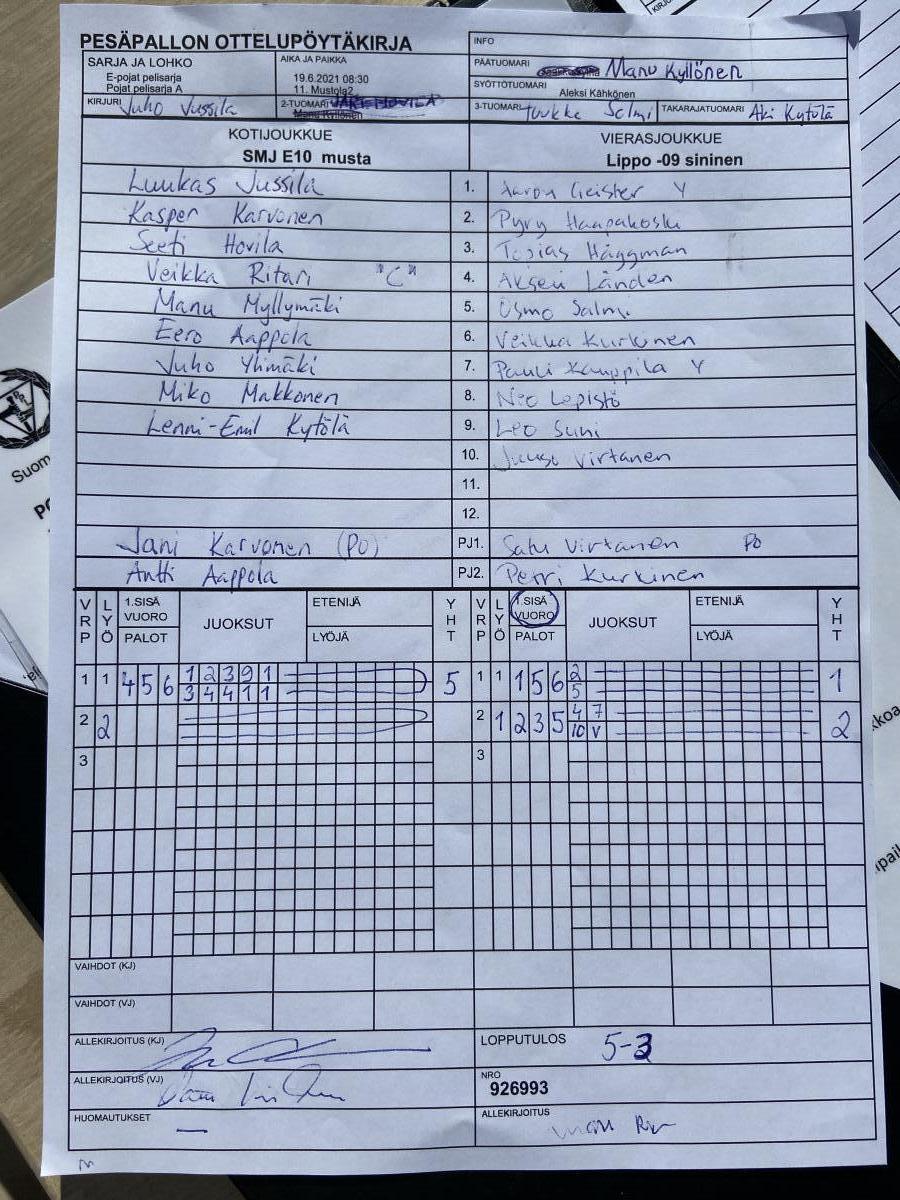 PESÄPALLON OTTELUPÖYTÄKIRJA
INFO
SARJA JA LOHKO
E-pojat pelisarja
Pojat pelisarja A
AIKA JA PAIKKA
19.6.2021 08:30
11. Mustola2
PÄÄTUOMARI Manu Kyllönen
SYÖTTÖTUOMARI
Aleksi Kähkönen
KIRJURI Juho Jussila
2-TUOMARI
3-TUOMARI Tuukka Salmi
TAKARAJATUOMARI Aki Kytölä
KOTIJOUKKUE
SMJ E10 musta
VIERASJOUKKUE
Lippo -09 sininen
Luukas Jussila 1. Aaron Geisler Y
Kasper Karvonen 2. Pyry Haapakoski
Seeti Hovila 3. Tobias Häggman
Veikka Ritari "C" 4. Akseli Länden
Manu Myllymäki 5. Osmo Salmi
Eero Aappola 6. Veikka Kurkinen
Juho Ylimäki 7. Pauli Kamppila Y
Miko Makkonen 8. Neo Lepistö
Lenni-Emil Kytölä 9. Leo Suni
10. Juuso Virtanen
11.
12.
Jani Karvonen (PO) PJ1. Satu Virtanen PO
Antti Aappola PJ2. Petri Kurkinen
VRP LYÖ 1.SISÄ VUORO PALOT JUOKSUT ETENIJÄ LYÖJÄ YHT
VRP LYÖ 1.SISÄ VUORO PALOT JUOKSUT ETENIJÄ LYÖJÄ YHT
1 1 4 5 6 1 2 3 9 1 5 1 1 1 5 6 2 1
3 4 4 1 1 5
2 2 2 1 2 3 5 4 7 2
10 V
3 3
VAIHDOT (KJ)
VAIHDOT (VJ)
ALLEKIRJOITUS (KJ)
LOPPUTULOS 5-3
ALLEKIRJOITUS (VJ)
NRO
926993
HUOMAUTUKSET
—
ALLEKIRJOITUS